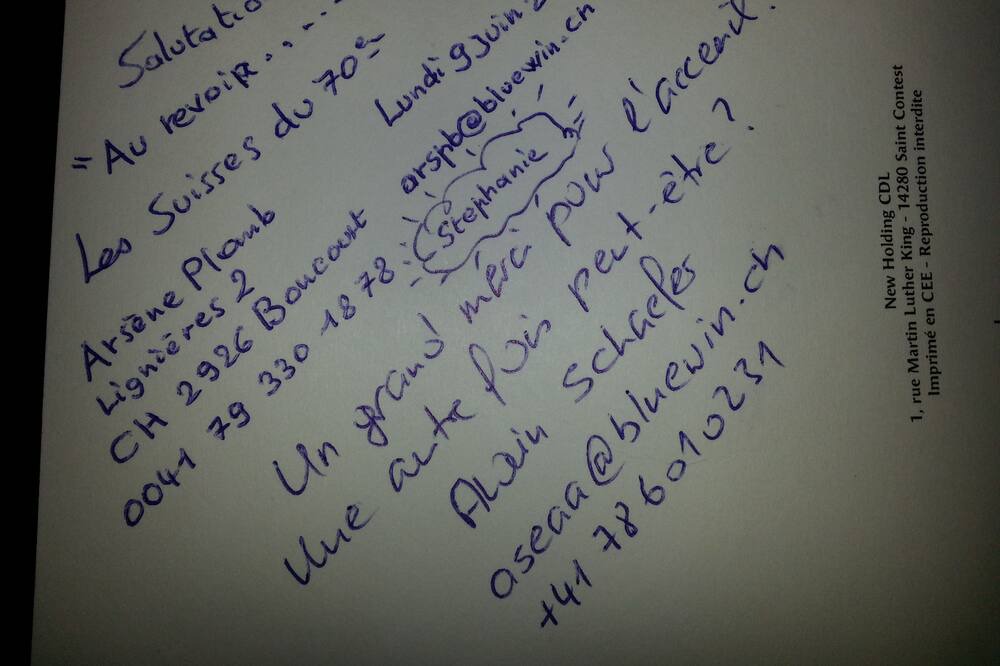 Salutatio
"Au revoir....
Les Suisses du 70e
Lundi 9 juin
Arsène Plomb
Lignières 2
CH 2926 Boncourt
0041 79 330 18 78
arspb@bluewin.ch
Stéphanie
Un grand merci pour l'accueil.
Une autre fois peut-être ?
Alain Schaefer
aseaa@bluewin.ch
+41 78 601 02 31
New Holding CDL
1, rue Martin Luther King - 14280 Saint Contest
Imprimé en CEE - Reproduction interdite